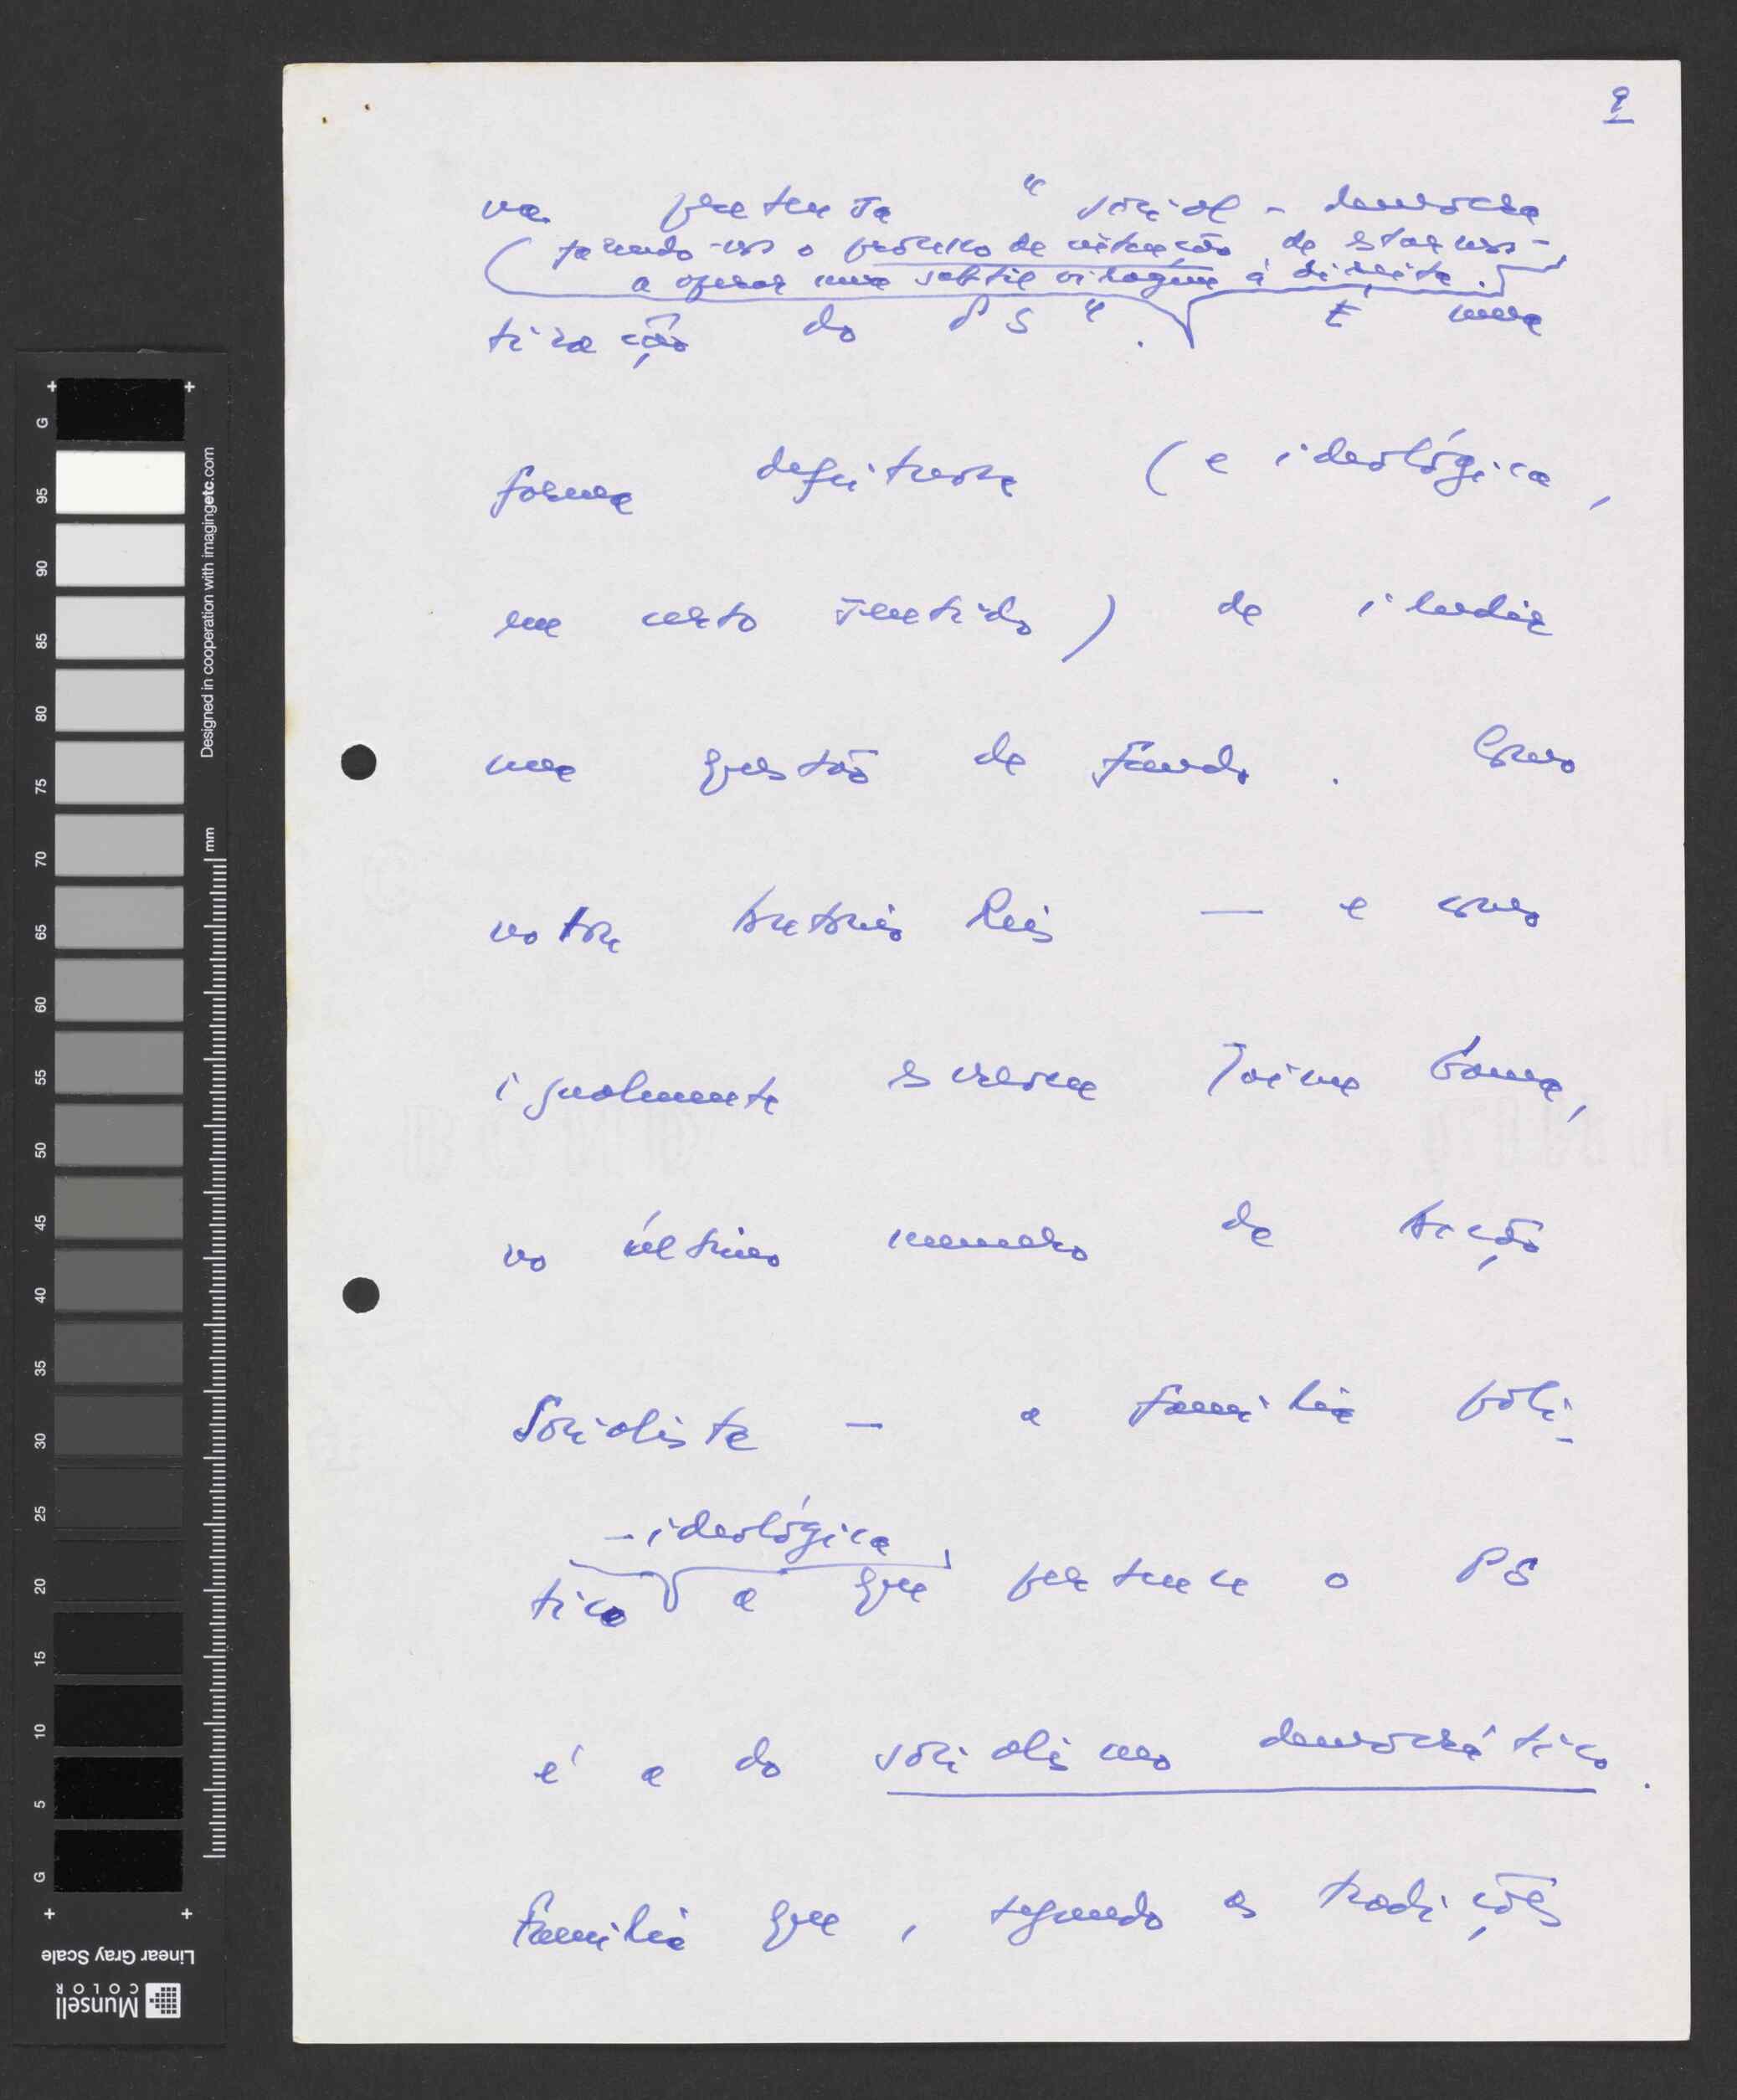 9
na pretensa "social-democra
(fazendo-nos o processo de intenção de estarmos
a operar uma subtil viragem à direita.)
tização do PS". É uma
forma defeituosa (e ideológica,
em certo sentido) de iludir
uma questão de fundo. Como
nota António Reis — e como
igualmente escreve Jaime Gama,
no último numero da Acção
Socialista — a familia poli-
-ideológica
tico a que pertence o PS
é a do socialismo democrático.
Familia que, segundo as tradições
G 95 90 85 80 75 70 65 60 55 50 45 40 35 30 25 20 15 10 5 G
mm
Designed in cooperation with imagingetc.com
Linear Gray Scale
Munsell
COLOR